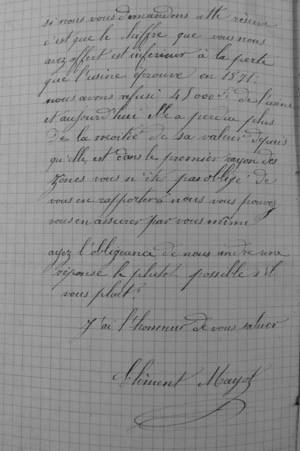 si nous vous demandons cette réserve
c'est que le chiffre que vous nous
avez offert est inférieur à la perte
que l'usine éprouve en 1871;
nous avons refusé 45000 f. de l'usine
et aujourd'hui elle a perdue plus
de la moitié de sa valeur depuis
qu'elle est dans le premier rayon des
zônes vous n'ête pas obligé de
vous en rapporter à nous vous pouvez
vous en assurer par vous même
ayez l'obligeance de nous rendre une
réponse le plutot possible s'il
vous plait.
J'ai l'honneur de vous saluer
Clément Mayot